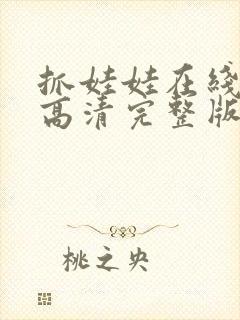 抓娃娃在线
高清完整版
桃之央